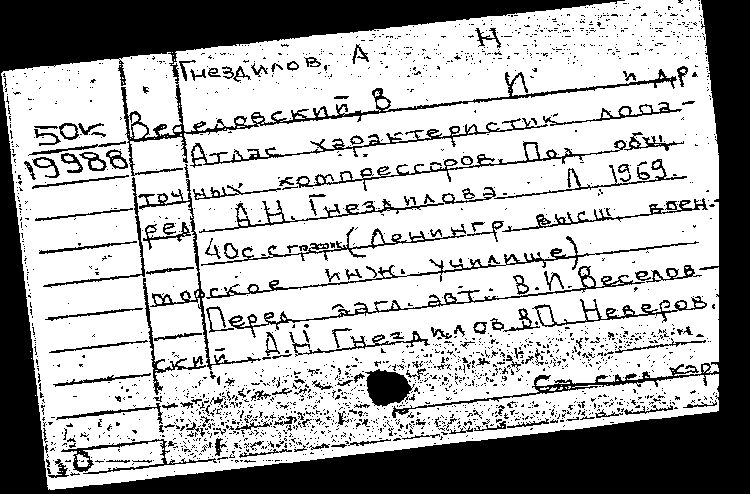 Гнездилов, А Н
50к Веселовский, В И и др.
19988 Атлас характеристик лопа-
точных компрессоров. Под общ.
ред. А.Н. Гнездилова. Л., 1969.
40с. с график. (Ленингр. высш. воен.-
морское инж. училище)
Перед загл. авт.: В.И. Веселов-
ский, А.Н. Гнездилов, В.П. Неверов.
н.
См след. карт